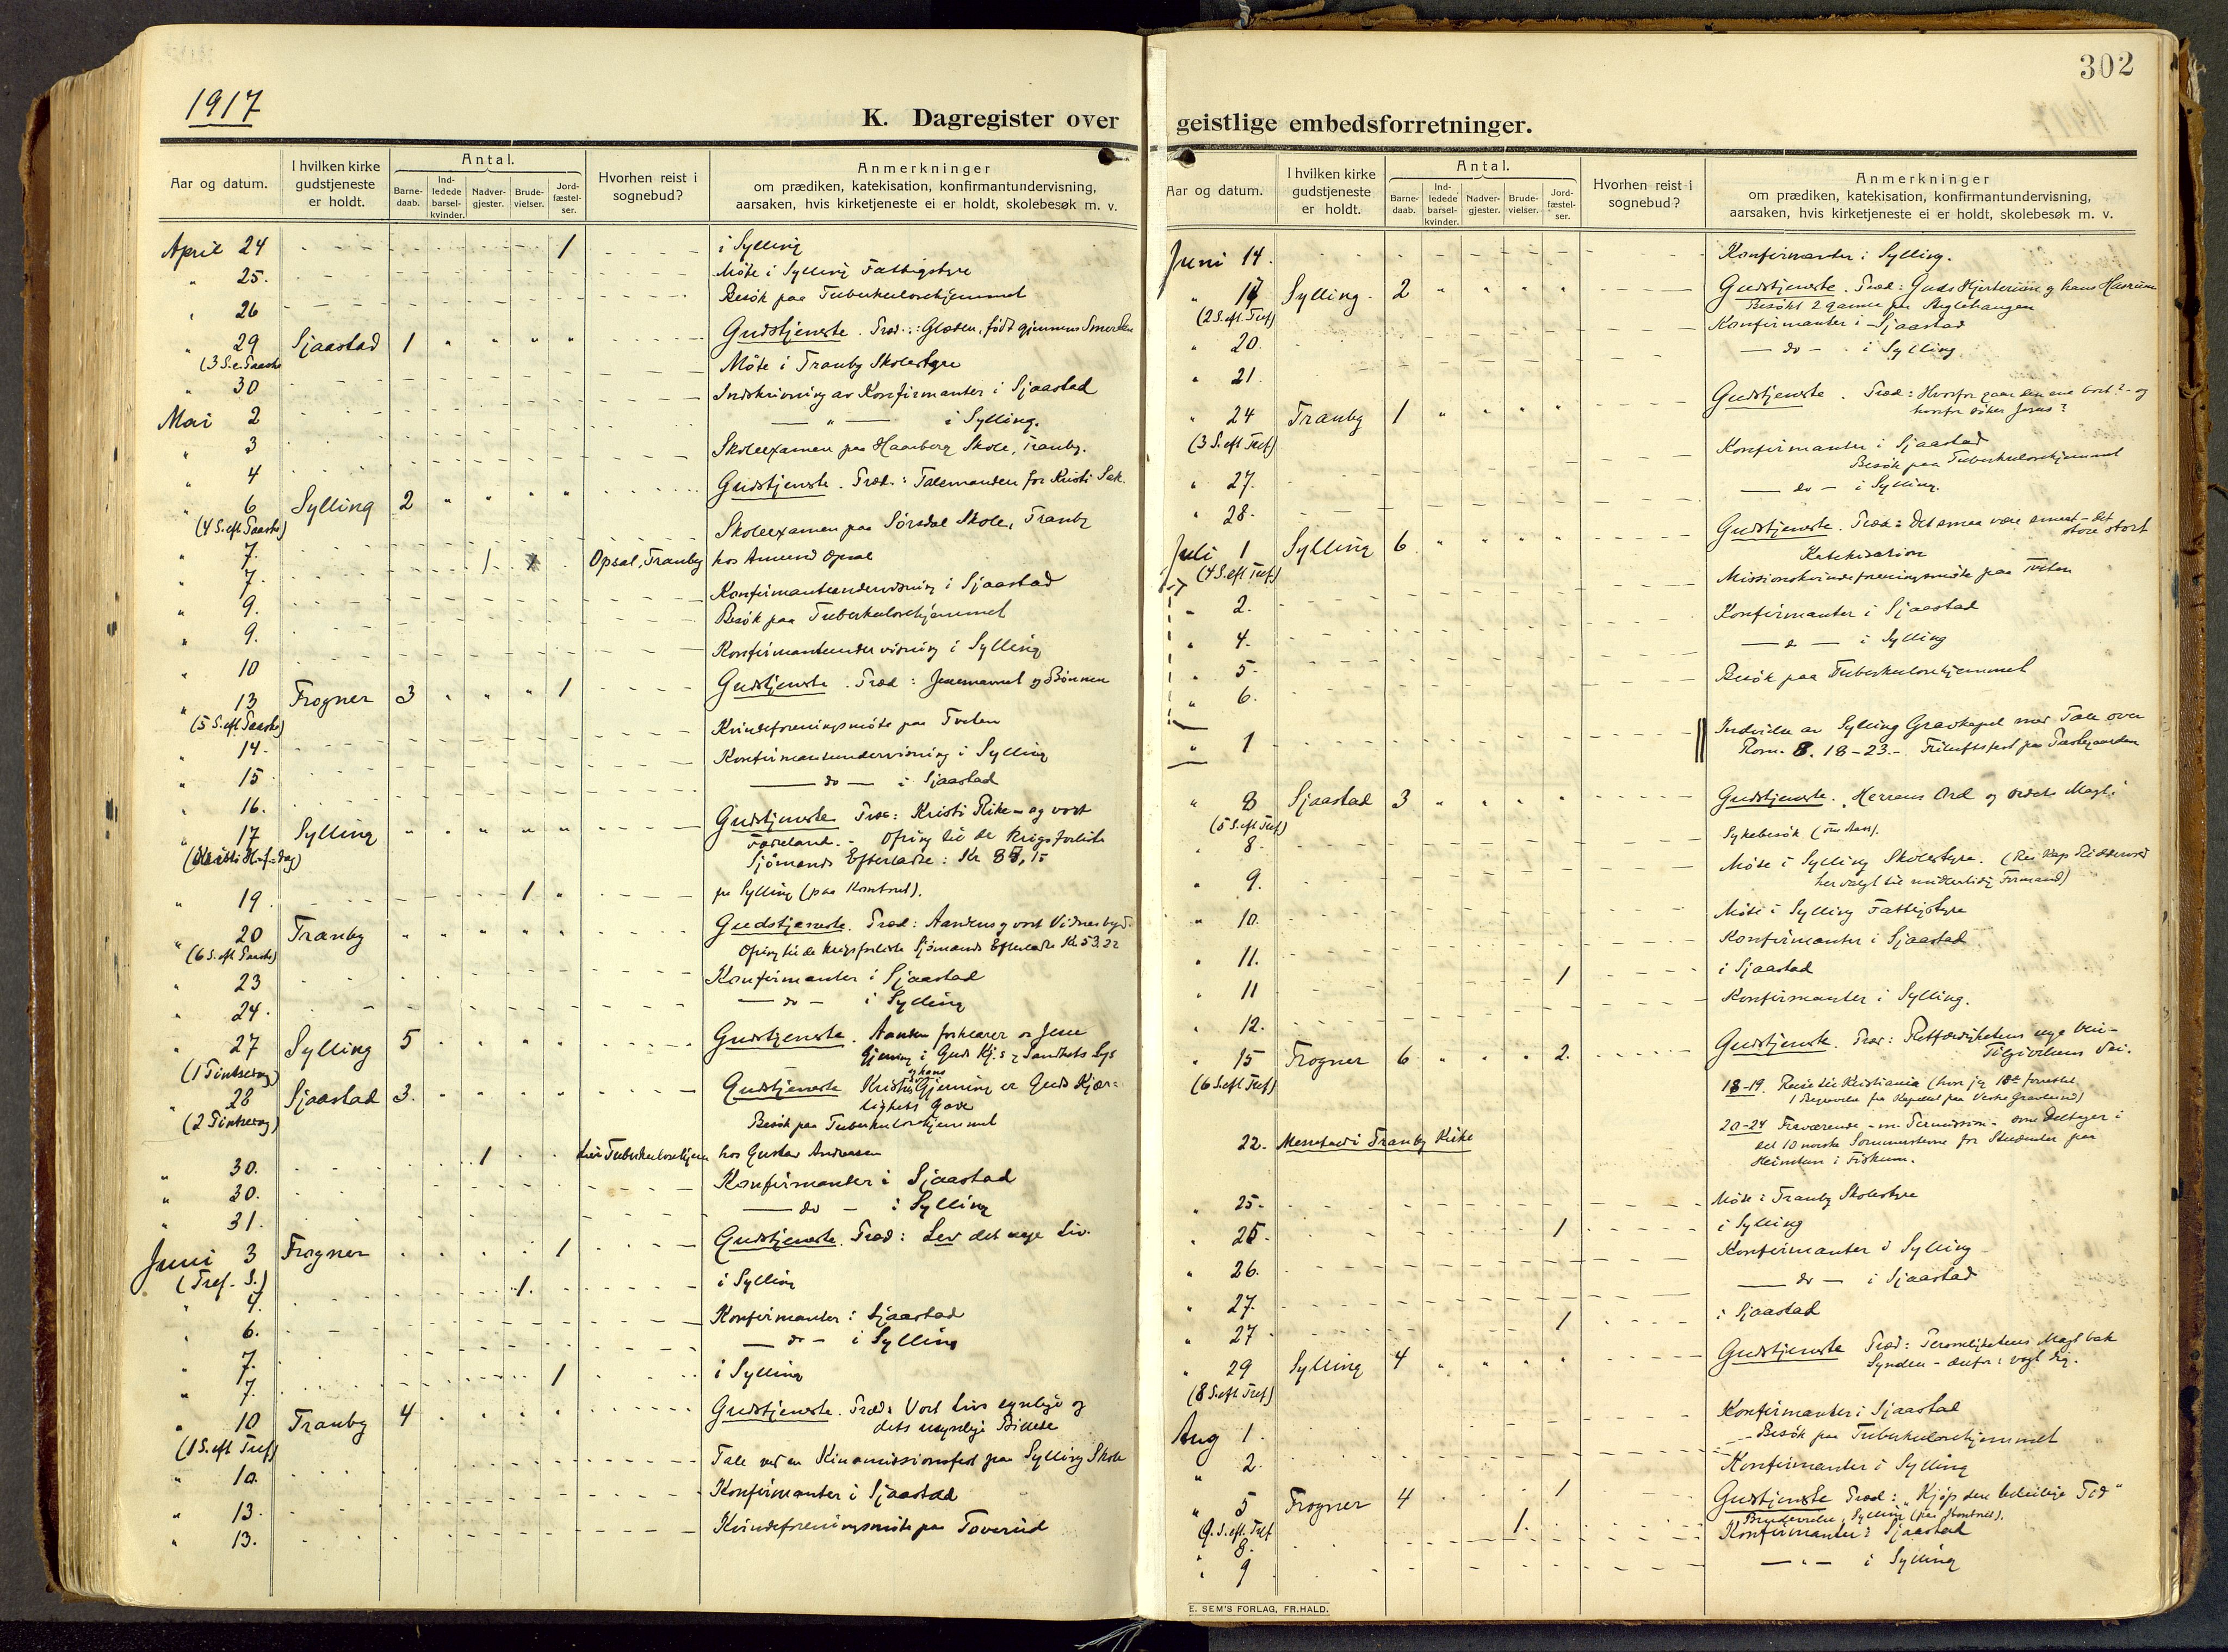 1917
K. Dagregister over
Aar og datum.
I hvilken kirke gudstjeneste er holdt.
Antal.
Barne-daab.
Ind-ledede barsel-kvinder.
Nadver-gjester.
Brude-vielser.
Jord-fæstel-ser.
Hvorhen reist i sognebud?
Anmerkninger
om prædiken, katekisation, konfirmantundervisning,
aarsaken, hvis kirketjeneste ei er holdt, skolebesøk m. v.
April 24 1 i Sylling
" 25. Møte i Sylling Fattigstyre
" 26 Besøk paa Tuberkulosehjemmet
" 29 Sjaastad 1 " " " " Gudstjeneste. Præd.: Glæden, født gjennem Smerten
(3 S. e. Paaske
" 30 Møte i Tranby Skolestyre
Mai 2 Indskrivning av Konfirmanter i Sjaastad
" 3 — " — i Sylling.
" 4 Skoleexamen paa Haaberg Skole, Tranby.
" 6 Sylling 2 " " " " Gudstjeneste. Præd.: Talsmanden for Kristi Sak.
(4 S. eft. Paaske)
" 7. Skoleexamen paa Sørsdal Skole, Tranby
" 7. 1 Opsal, Tranby hos Amund Opsal
" 9. Konfirmantundervisning i Sjaastad
" 9. Besøk paa Tuberkulosehjemmet
" 10 Konfirmantundervisning i Sylling
" 13 Frogner 3 " " " 1 Gudstjeneste. Præd: Jesunavnet og Bønnen
(5 S. eft. Paaske)
" 14. Kvindeforeningsmøte paa Tveten
" 15 Konfirmantundervisning i Sylling
" 16. — do — i Sjaastad
" 17 Sylling " " " " " Gudstjeneste Præd: Kristi Rike – og vort
(Kristi H-f-dag) Fædreland. – Ofring til de krigsforliste
Sjömænds Efterladte: Kr 87,15
" 19. 1 " fra Sylling (paa Kontoret).
" 20 Tranby " " " " " Gudstjeneste. Præd: Aandens og vort Vidnesbyrd
(6 S. eft Paaske) Ofring til de krigsforliste Sjömænds Efterladte Kr. 53.22
" 23 Konfirmanter i Sjaastad
" 24. — do — i Sylling
" 27 Sylling 5 " " " " Gudstjeneste. Aanden forklarer os Jesu
(1 Pintsedag) Gjerning i Guds Kj.s og Sandhets Lys
" 28 Sjaastad 3. " " " " Gudstjeneste Kristus og hans Gjerning er Guds Kjær-
(2 Pintsedag) lighets Gave
Besøk paa Tuberkulosehjemmet
" 30. 1 Lier Tuberkulosehjem hos Gustav Andreasen
" 30. Konfirmanter i Sjaastad
" 31. — do — i Sylling
Juni 3 Frogner 1 Gudstjeneste. Præd: Lev det nye Liv.
(Tref. S.)
" 4. 1. i Sylling
" 6. Konfirmanter i Sjaastad
" 7. — do — i Sylling
" 7. 1 i Sylling
" 10 Tranby 4 Gudstjeneste. Præd: Vort Livs synlige og
(1 S. eft Tref) dets usynlige Billede
" 10. Tale ved en Kinamissionsfest paa Sylling Skole
" 13. Konfirmanter i Sjaastad
" 13. Kvindeforeningsmöte paa Toverud
302
geistlige embedsforretninger.
Aar og datum.
I hvilken kirke gudstjeneste er holdt.
Antal.
Barne-daab.
Ind-ledede barsel-kvinder.
Nadver-gjester.
Brude-vielser.
Jord-fæstel-ser.
Hvorhen reist i sognebud?
Anmerkninger
om prædiken, katekisation, konfirmantundervisning,
aarsaken, hvis kirketjeneste ei er holdt, skolebesøk m. v.
Juni 14. Konfirmanter i Sylling.
" 17 Sylling. 2 " " " " Gudstjeneste. Præd: Guds Hjerterum og hans Husrum
(2 S. eft. Tref)
" 20. Konfirmanter i Sjaastad
" 21. — do — i Sylling
" 24 Tranby 1 " " " " Gudstjeneste. Præd: Hvorfor gaar den ene bort? – og
(3 S. eft Tref) hvorfor söker Jesus?
" 27. Konfirmanter i Sjaastad
Besøk paa Tuberkulosehjemmet
" 28. — do — i Sylling.
Juli 1 Sylling 6 " " " " Gudstjeneste. Præd: Det smaa være smaat – det store stort
(4 S. eft Tref) Katekisation
" 2. Missionskvindeforeningsmöte paa Tveten
" 4. Konfirmanter i Sjaastad
" 5. — " — i Sylling
" 6. Besök paa Tuberkulosehjemmet
" 1 Indvielse av Sylling Gravkapel med Tale over
Rom. 8. 18-23. – Friluftsfest paa Præstegaarden
" 8 Sjaastad 3 " " " " Gudstjeneste. Herrens Ord og Ordets Magt.
(5 S. eft Tref)
" 8. Sykebesök
" 9. Møte i Sylling Skolestyre.
her valgt til midlertidig Formand)
" 10. Møte i Sylling Fattigstyre
" 11. Konfirmanter i Sjaastad
" 11 1 i Sjaastad
" 12. Konfirmanter i Sylling.
" 15 Frogner 6 " " " 2. Gudstjeneste. Præd: Retfærdighetens nye Vei –
(6 S. eft Tref) Tilgivelsens Vei.
18-19. Reise til Kristiania
1 Begravelse fra Kapellet paa Vestre Gravlund)
20-24 Fraværende – m. Permission – som Deltager i
22. Messefald i Tranby Kirke det 10 norske Sommerstevne for Studenter paa
Heimtun i Fiskum.
" 25. Møte i Tranby Skolestyre
" 25. 1 i Sylling
" 26. Konfirmanter i Sylling
" 27. — do — i Sjaastad
" 27 1 i Sjaastad
" 29 Sylling 4 " " " " Gudstjeneste Præd: Personlighetens Magt bak
(8 S. eft Tref) Synden – derfor: vogt dig.
Aug 1. Konfirmanter i Sjaastad
Besök paa Tuberkulosehjemmet
" 2. Konfirmanter i Sylling
" 5 Frogner 4 1 Gudstjeneste Præd: "Kjøp den beleilige Tid"
(9. S. eft. Tref 1. Brudevielse, Sylling (paa Kontoret).
" 8. Konfirmanter i Sjaastad
" 9 — " — i Sylling
E. SEM'S FORLAG, FR.HALD.